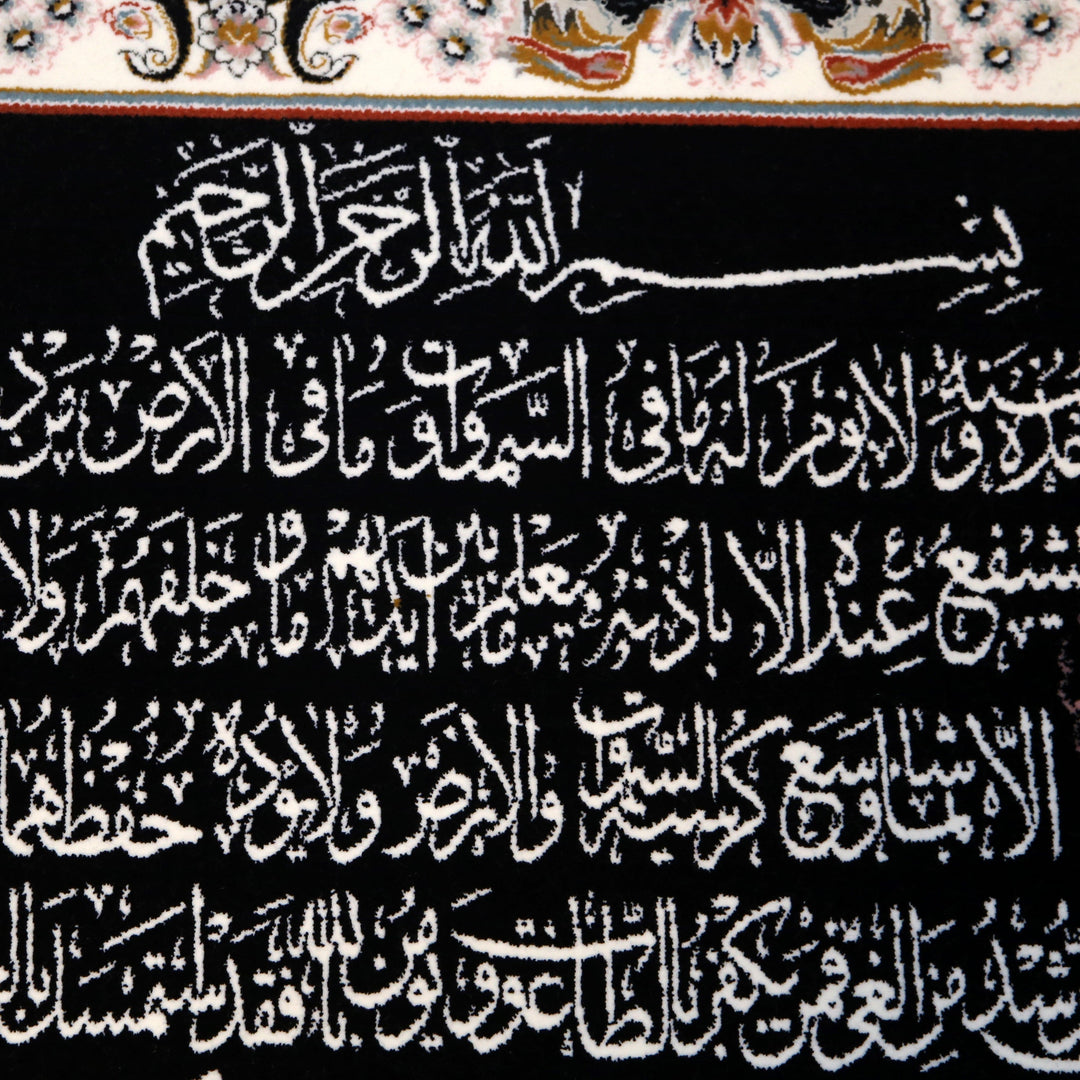 بِسْمِ اللهِ الرَّحْمٰنِ الرَّحِيمِ
سِنَةٌ وَلَا نَوْمٌ لَهُ مَا فِي السَّمٰوَاتِ وَمَا فِي الْأَرْضِ مَنْ
يَشْفَعُ عِنْدَهُ إِلَّا بِإِذْنِهِ يَعْلَمُ مَا بَيْنَ أَيْدِيهِمْ وَمَا خَلْفَهُمْ وَلَا
إِلَّا بِمَا شَاءَ وَسِعَ كُرْسِيُّهُ السَّمٰوَاتِ وَالْأَرْضَ وَلَا يَؤُدُهُ حِفْظُهُمَا
الرُّشْدُ مِنَ الْغَيِّ فَمَنْ يَكْفُرْ بِالطَّاغُوتِ وَيُؤْمِنْ بِاللهِ فَقَدِ اسْتَمْسَكَ